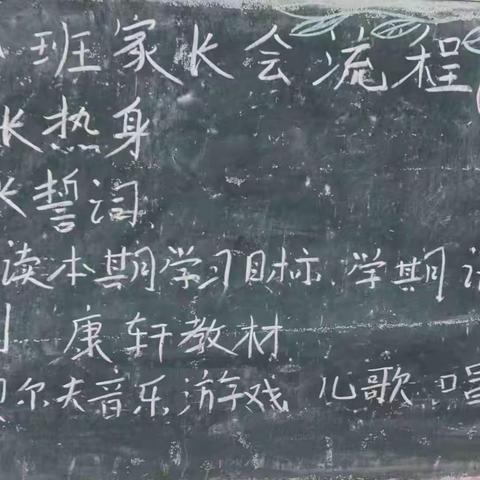 班家长会流程
长热身
长誓词
读本期学习目标、学期
康轩教材
尔夫音乐游戏 儿歌 唱